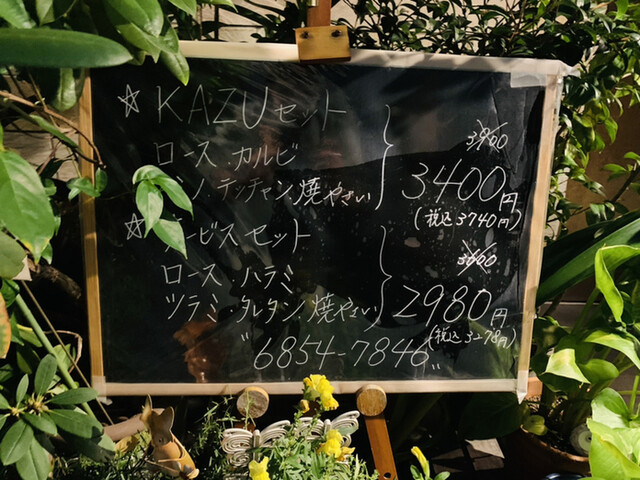 ☆ KAZUセット
ロース・カルビ 3900
テッチャン.焼やさい 3400円
(税込3740円)
ービスセット
ロース・ハラミ 3600
ツラミ・タレタン.焼やさい 2980円
(税込3278円)
"6854-7846"